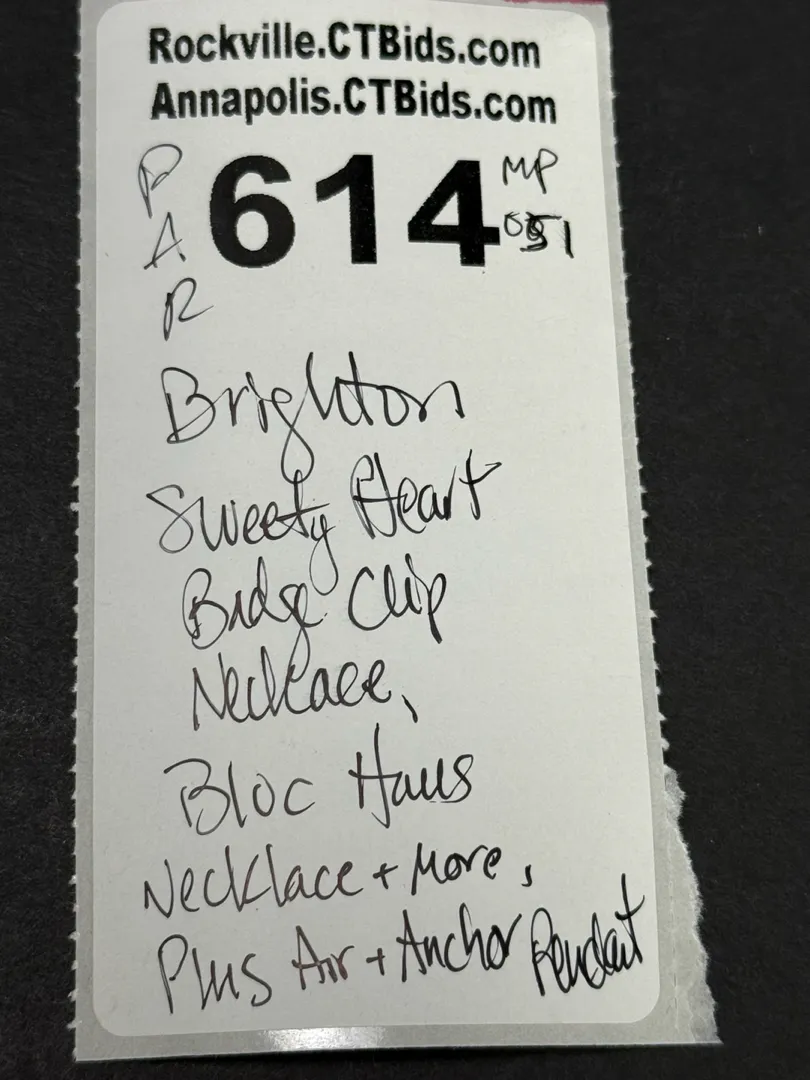 Rockville.CTBids.com
Annapolis.CTBids.com
PAR
614
MP
051
Brighton
Sweety Heart
Badge Clip
Necklace,
Bloc Haus
Necklace + More,
Plus Air + Anchor Pendant